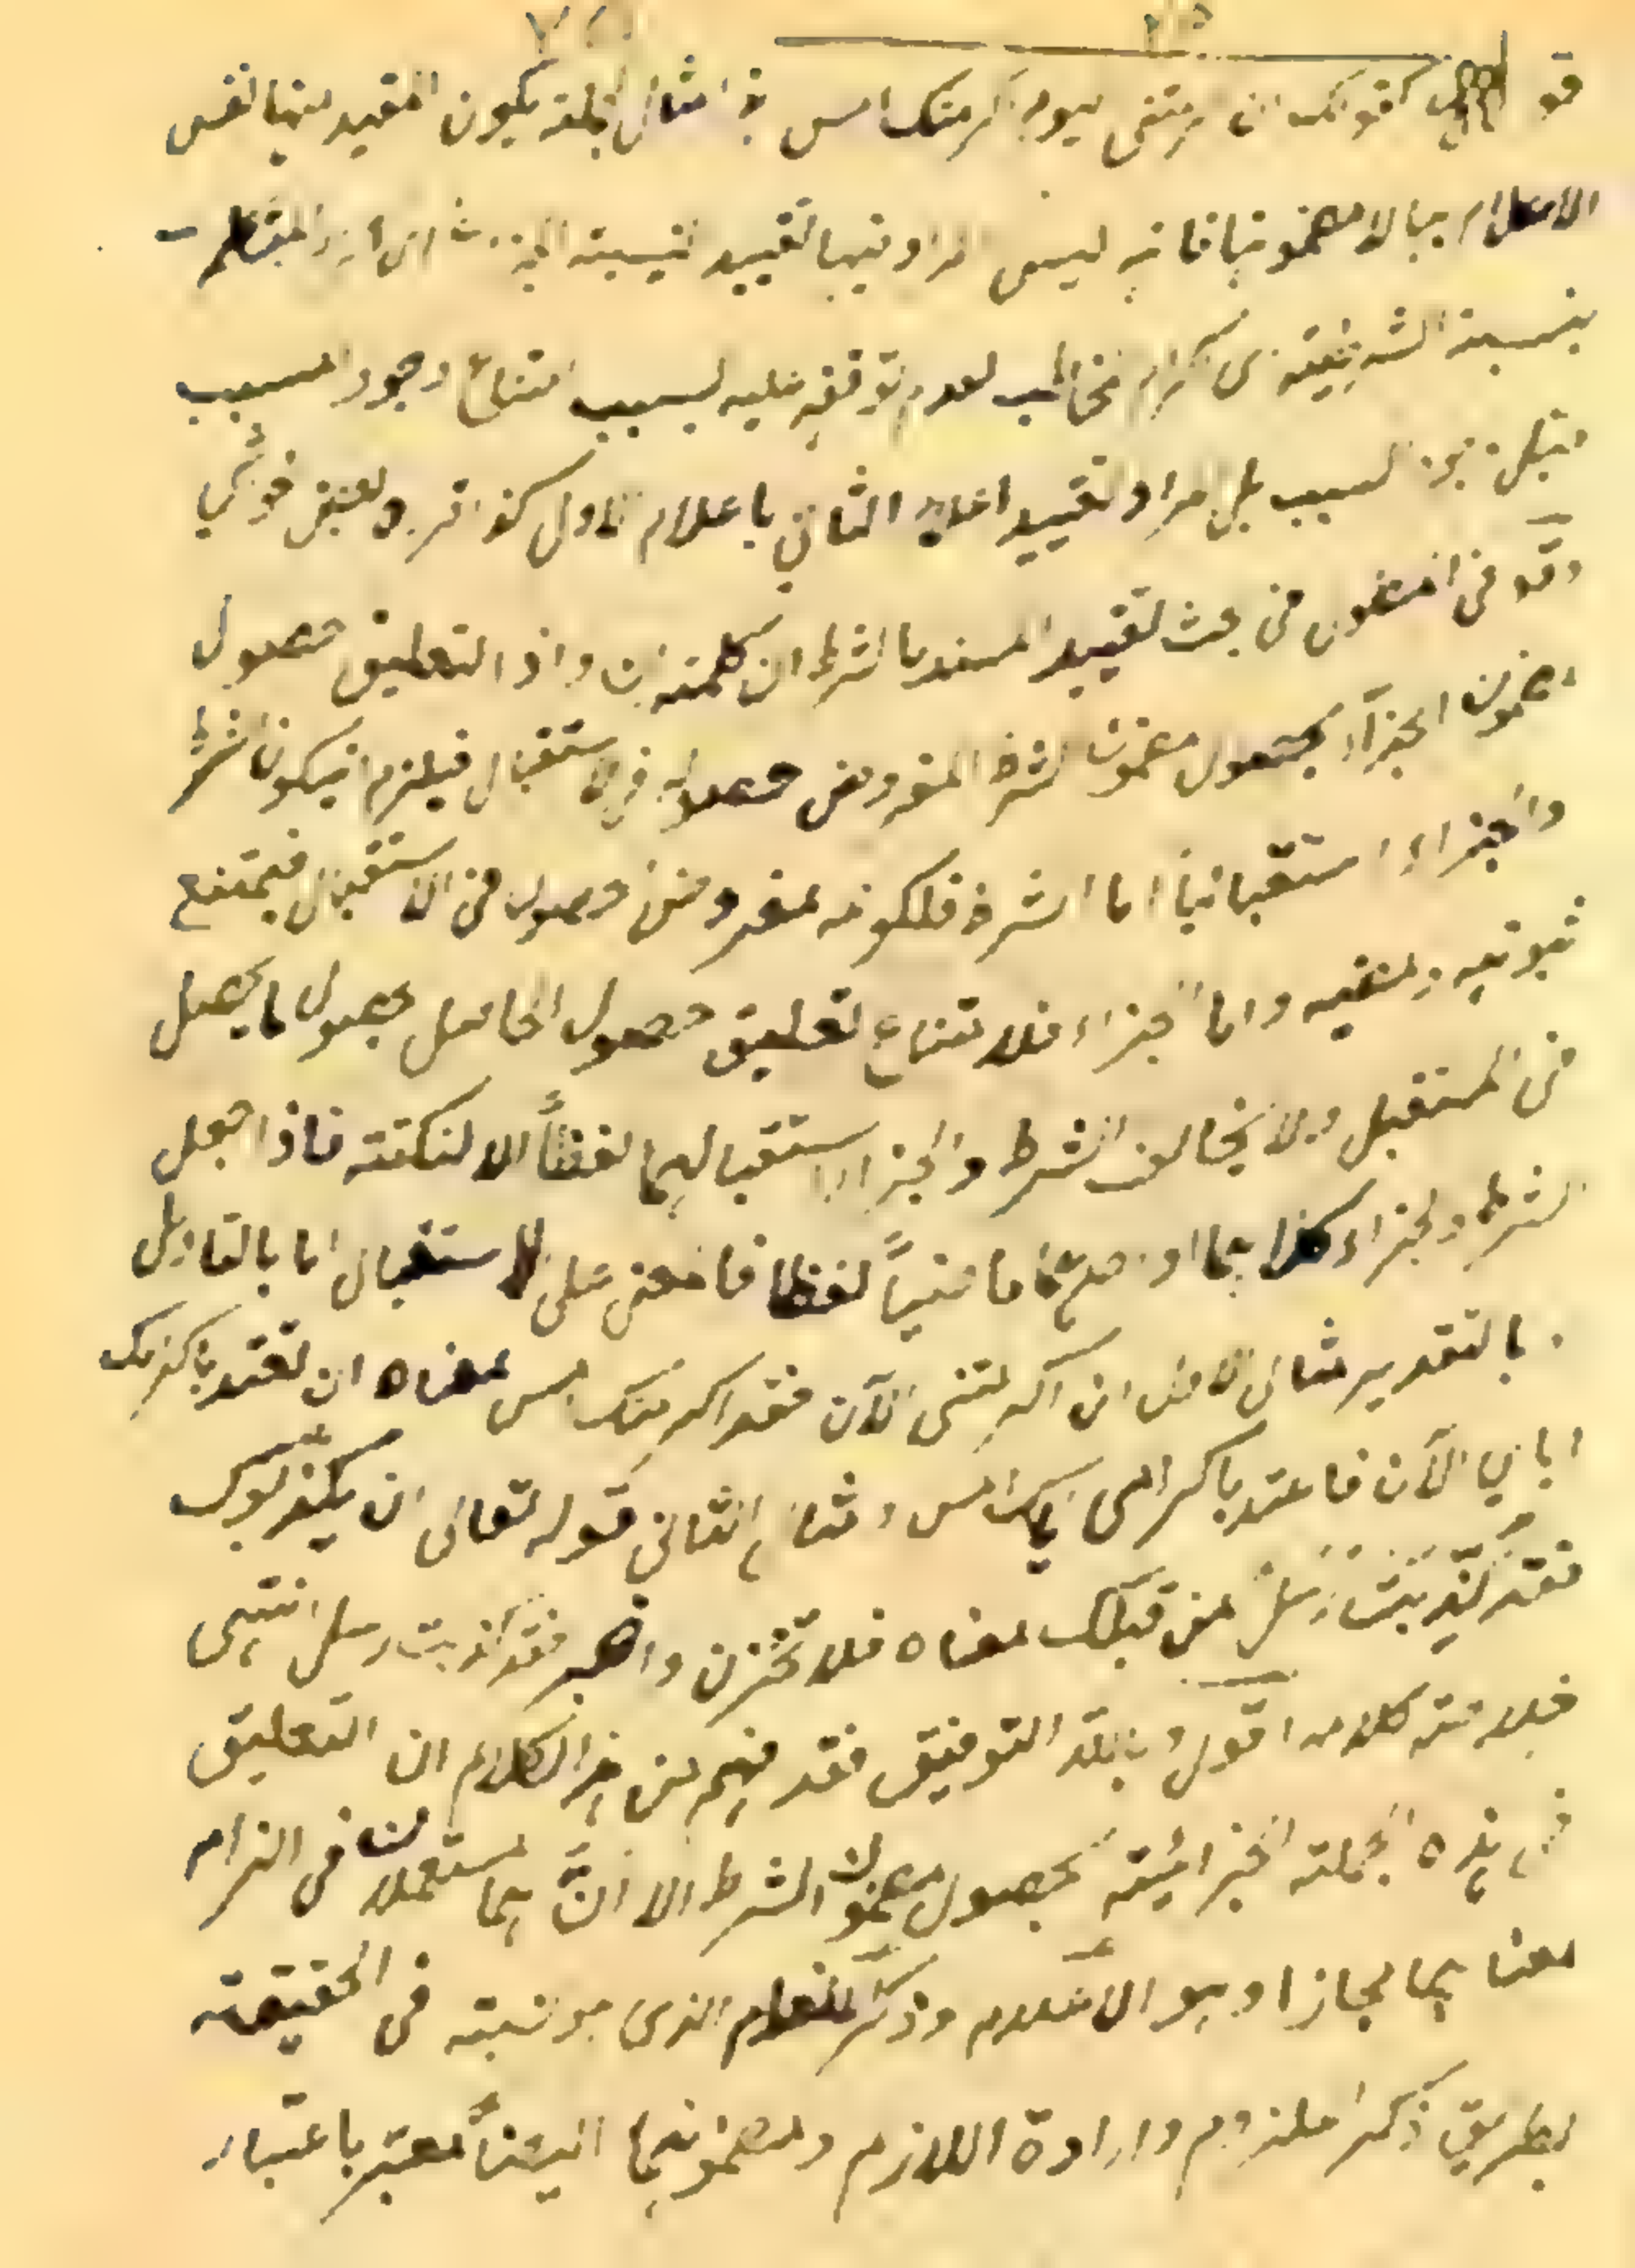 كقولك ان اكرمتنى اليوم اكرمتك امس فى امثال الجملة يكون المقيد منها نفس
الاعلام بها لا مضمونها فانه ليس المراد فيها تقييد نسبة الجزاء اى اكرام المتكلم
بنسبة الشرطية اى اكرام المخاطب لعدم توقفه عليه لسبب امتناع وجود المسبب
قبل السبب بل المراد تقييد اعلام الثانى باعلام الاول كذا قرره بعض
وقد فى المطول فى بحث تقييد المسند بالشرط ان كلمة ان و اذا لتعليق حصول
مضمون الجزاء بحصول مضمون الشرط المفروض حصوله فى الاستقبال فيلزم ان يكون الشرط
والجزاء استقباليا اما الشرط فلكونه مفروض حصوله فى الاستقبال فيمتنع
ثبوته ومضيه واما الجزاء فلامتناع تعليق حصول الحاصل بحصول ما يحصل
فى المستقبل ولا يخالف الشرط والجزاء استقبالهما لفظًا الا لنكتة فاذا جعل
الشرط والجزاء كلاهما او احدهما ماضيًا لفظا فالمعنى على الاستقبال اما بالتاويل
او بالتقدير مثال الاول ان اكرمتنى الآن فقد اكرمتك امس معناه ان تعتد باكرامك
اياي الآن فاعتد باكرامى اياك امس ومثال الثانى قوله تعالى ان يكذبوك
فقد كذبت رسل من قبلك معناه فلا تحزن واصبر فقد كذبت رسل انتهى
خلاصة كلامه اقول وبالله التوفيق فقد فهم من هذا الكلام ان التعليق
فى هذه الجملة الجزائية بحصول مضمون الشرط الا انهما استعملا هنا فى التزام
معناهما مجازا وهو الاعلام وذكر الذى هو نسبة فى الحقيقة
بطريق ذكر الملزوم وارادة اللازم ومضمونهما ايضاً معتبر باعتبار